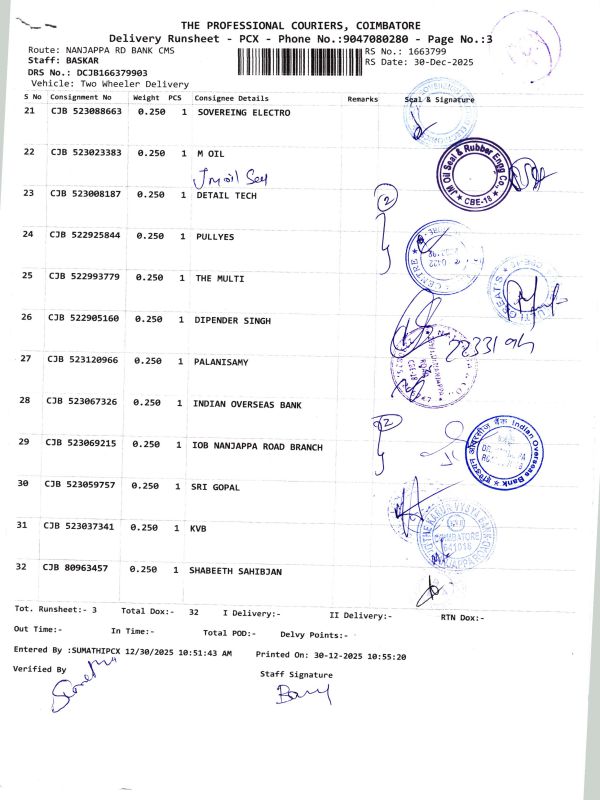 THE PROFESSIONAL COURIERS, COIMBATORE
Delivery Runsheet - PCX - Phone No.:9047080280 - Page No.:3
Route: NANJAPPA RD BANK CMS RS No.: 1663799
Staff: BASKAR RS Date: 30-Dec-2025
DRS No.: DCJB166379903
Vehicle: Two Wheeler Delivery
S No Consignment No Weight PCS Consignee Details Remarks Seal & Signature
21 CJB 523088663 0.250 1 SOVEREING ELECTRO
22 CJB 523023383 0.250 1 M OIL
JM oil Seal
JM Oil Seal & Rubber Engg Co., ★ CBE-18 ★
23 CJB 523008187 0.250 1 DETAIL TECH
2
24 CJB 522925844 0.250 1 PULLYES
25 CJB 522993779 0.250 1 THE MULTI
26 CJB 522905160 0.250 1 DIPENDER SINGH
27 CJB 523120966 0.250 1 PALANISAMY
28 CJB 523067326 0.250 1 INDIAN OVERSEAS BANK
2
इण्डियन ओवरसीज बैंक Indian Overseas Bank
29 CJB 523069215 0.250 1 IOB NANJAPPA ROAD BRANCH
30 CJB 523059757 0.250 1 SRI GOPAL
31 CJB 523037341 0.250 1 KVB
THE KARUR VYSYA BANK
COIMBATORE
641018
32 CJB 80963457 0.250 1 SHABEETH SAHIBJAN
Tot. Runsheet:- 3 Total Dox:- 32 I Delivery:- II Delivery:- RTN Dox:-
Out Time:- In Time:- Total POD:- Delvy Points:-
Entered By :SUMATHIPCX 12/30/2025 10:51:43 AM Printed On: 30-12-2025 10:55:20
Verified By Staff Signature